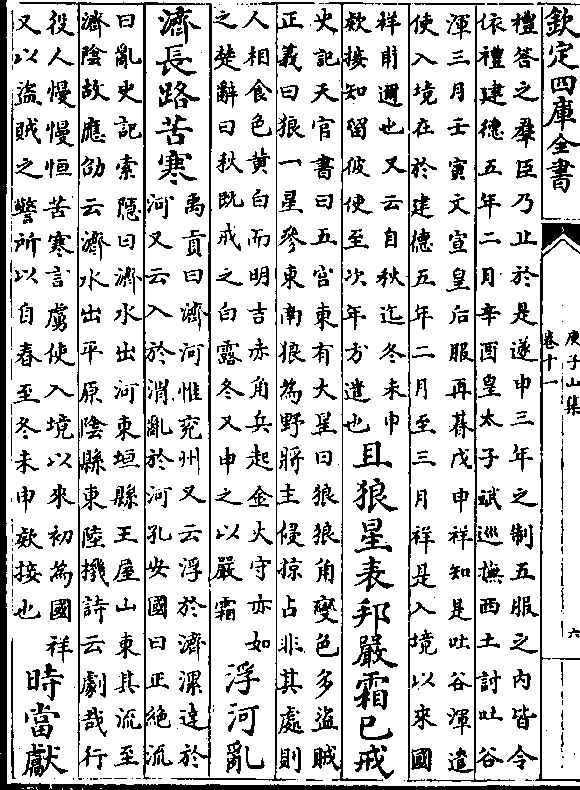 欽定四庫全書
庚子山集
卷十一
六
禮答之羣臣乃止於是遂申三年之制五服之内皆令
依禮建德五年二月辛酉皇太子贇巡撫西土討吐谷
渾三月壬寅文宣皇后服再朞戊申祥知是吐谷渾遣
使入境在於建德五年二月至三月祥是入境以來國
祥甫邇也又云自秋迄冬未申
欵接知留彼使至次年方遣也
且狼星表邦嚴霜已戒
史記天官書曰五宮東有大星曰狼狼角變色多盗賊
正義曰狼一星參東南狼為野將主侵掠占非其處則
人相食色黄白而明吉赤角兵起金火守亦如
之楚辭曰秋既戒之白露冬又申之以嚴霜
浮河亂
濟長路苦寒
禹貢曰濟河惟兖州又云浮於濟漯達於
河又云入於渭亂於河孔安國曰正絶流
曰亂史記索隠曰濟水出河東垣縣王屋山東其流至
濟陰故應劭云濟水出平原陰縣東陸機詩云劇哉行
役人慢慢恒苦寒言虜使入境以來初為國祥
又以盗賊之警所以自春至冬未申欵接也
時當獻